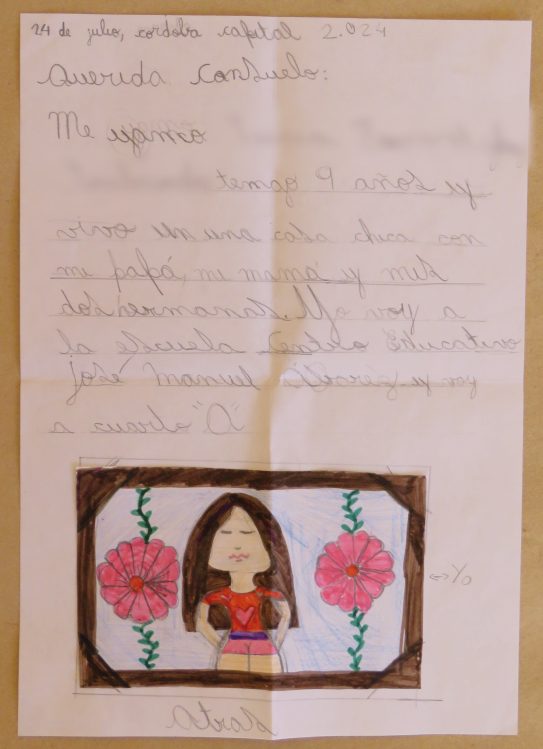 24 de julio, cordoba capital 2.024
Querida Consuelo:
Me yamo
tengo 9 años y
vivo en una casa chica con
mi papá, mi mamá y mis
dos hermanas. Yo voy a
la escuela Centro Educativo
José Manuel Álvarez y voy
a cuarto "A"
↔ Yo
atras